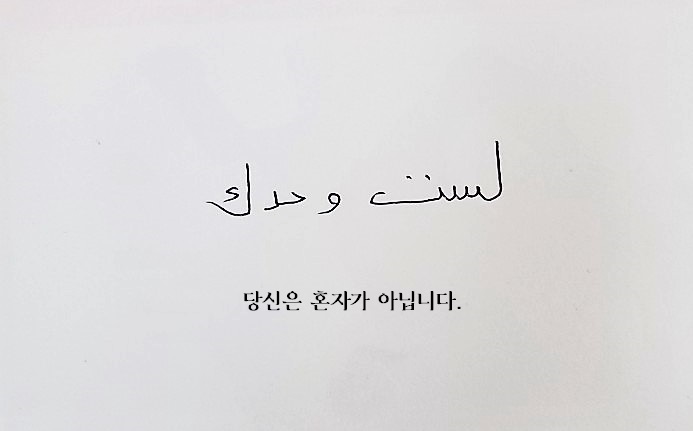 لست وحدك
당신은 혼자가 아닙니다.